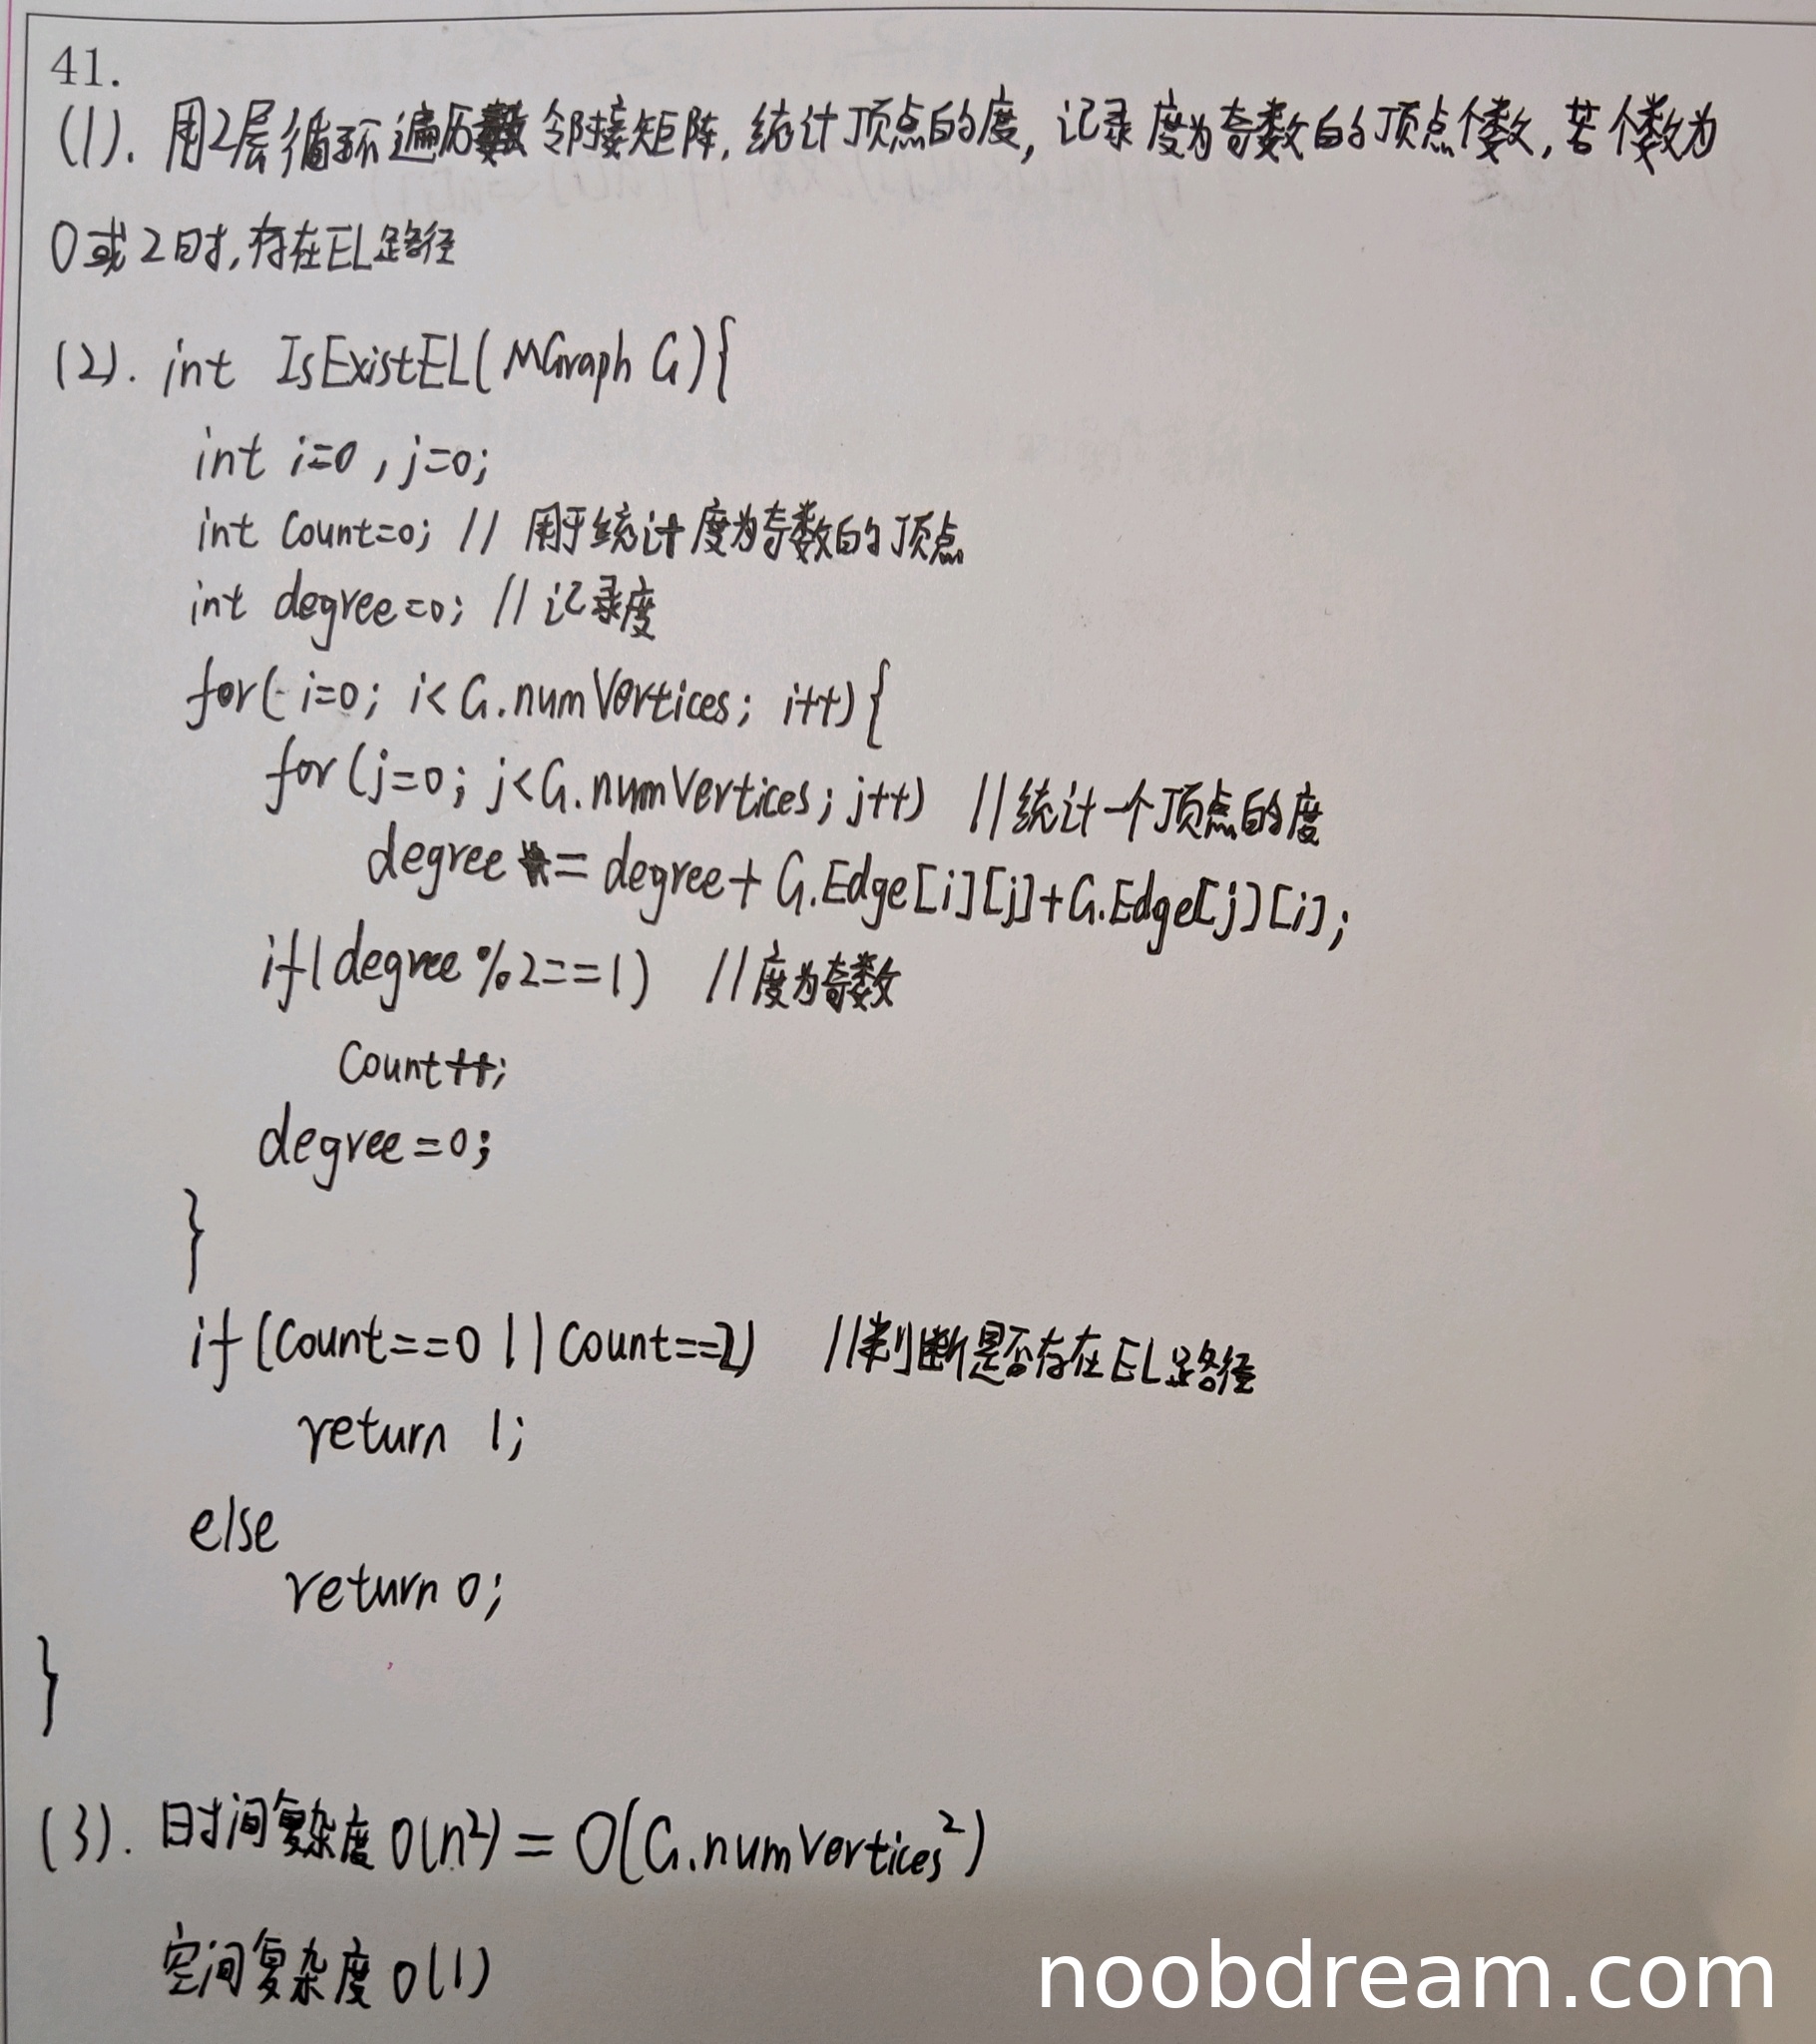 41.
(1). 用2层循环遍历邻接矩阵,统计顶点的度,记录度为奇数的顶点个数,若个数为
0或2时,存在EL路径
(2). int IsExistEL(MGraph G){
int i=0,j=0;
int count=0; // 用于统计度为奇数的顶点
int degree=0; //记录度
for(i=0; i<G.numVertices; i++){
for(j=0; j<G.numVertices; j++) //统计一个顶点的度
degree = degree+G.Edge[i][j]+G.Edge[j][i];
if(degree%2==1) //度为奇数
count++;
degree=0;
}
if(count==0||count==2) //判断是否存在EL路径
return 1;
else
return 0;
}
(3). 时间复杂度O(n²)=O(G.numVertices²)
空间复杂度O(1)
noobdream.com